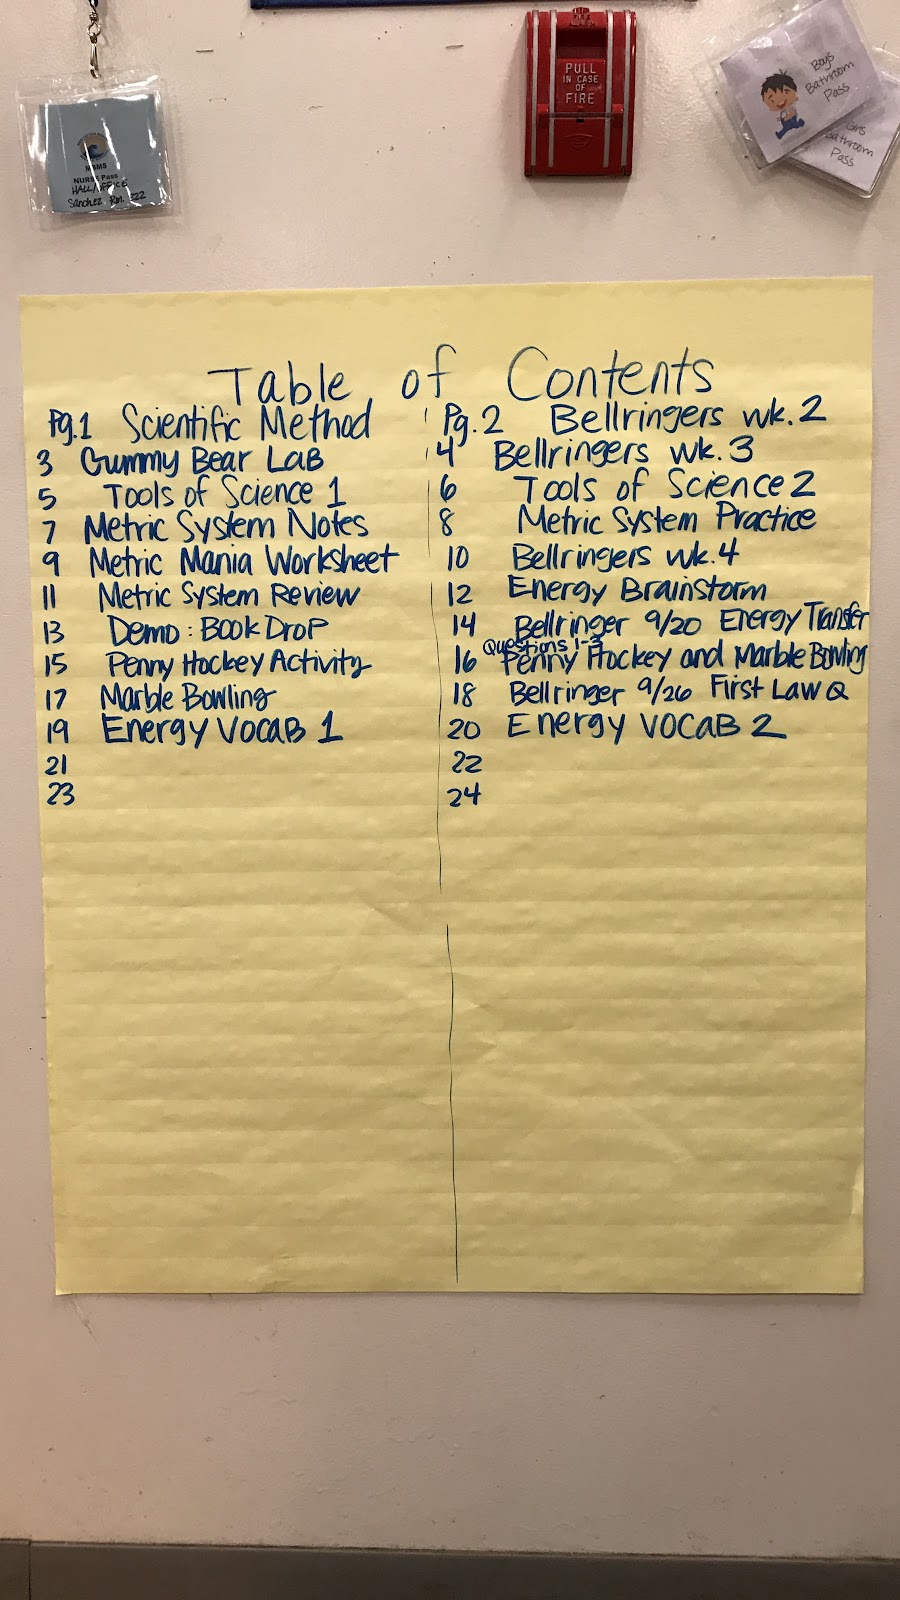 MBMS
NURSE Pass
HALL/OFFICE
Sanchez Rm. 222
PULL
IN CASE
OF
FIRE
Boys
Bathroom
Pass
Girls
Bathroom
Pass
Table of Contents
Pg.1 Scientific Method
3 Gummy Bear Lab
5 Tools of Science 1
7 Metric System Notes
9 Metric Mania Worksheet
11 Metric System Review
13 Demo: Book Drop
15 Penny Hockey Activity
17 Marble Bowling
19 Energy Vocab 1
21
23
Pg.2 Bellringers wk.2
4 Bellringers wk.3
6 Tools of Science 2
8 Metric System Practice
10 Bellringers wk.4
12 Energy Brainstorm
14 Bellringer 9/20 Energy Transfer
Questions 1-3
16 Penny Hockey and Marble Bowling
18 Bellringer 9/26 First Law Q
20 Energy Vocab 2
22
24